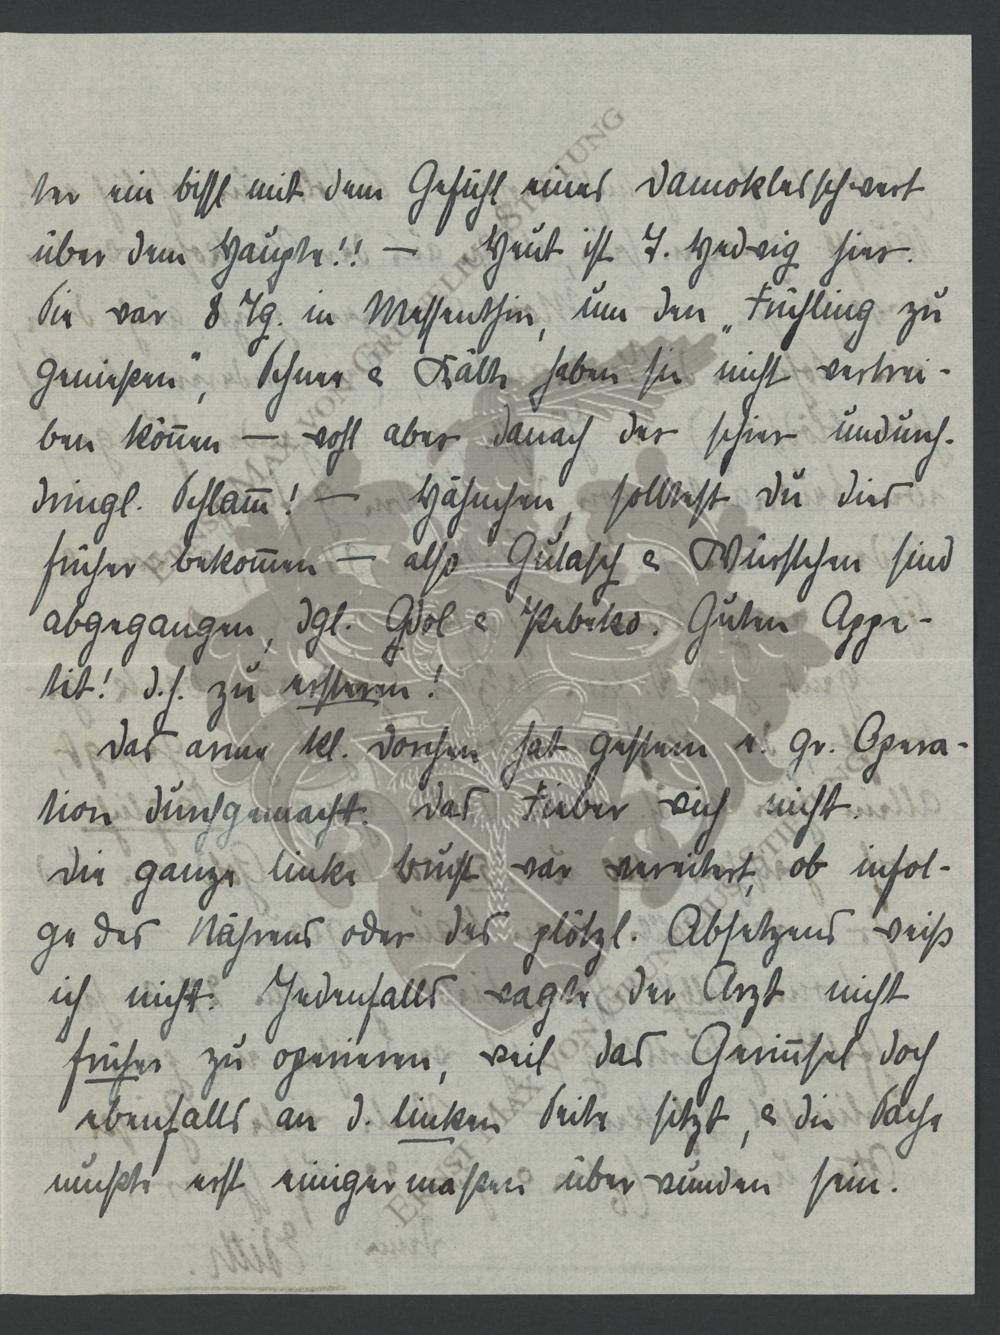 ter ein bissl mit dem Gefühl eines Damoklesschwert
über dem Haupte!! — Heut ist T. Hedwig hier.
Sie war 8 Tg. in Messenthin, um den „Frühling zu
genießen", Schnee & Kälte haben sie nicht vertrei-
ben kön̄en — wohl aber danach der schier undurch-
dringl. Schlam̄! — Hähnchen, solltest Du dies
früher bekom̄en — also Gulasch & Würstchen sind
abgegangen, dgl. Odol & Pebeko. Guten Appe-
tit! d.h. zu ersterem!
Das arme kl. Dorchen hat gestern e. gr. Opera-
tion durchgemacht. Das Fieber wich nicht.
Die ganze linke Brust war vereitert, ob infol-
ge des Nährens oder des plötzl. Absetzens weiß
ich nicht. Jedenfalls wagte der Arzt nicht
früher zu operieren, weil das Gerinnsel doch
ebenfalls an d. linken Seite sitzt, & die Sache
mußte erst einigermaßen überwunden sein.
ERNST MAX VON GRUNELIUS-STIFTUNG
ERNST MAX VON GRUNELIUS-STIFTUNG